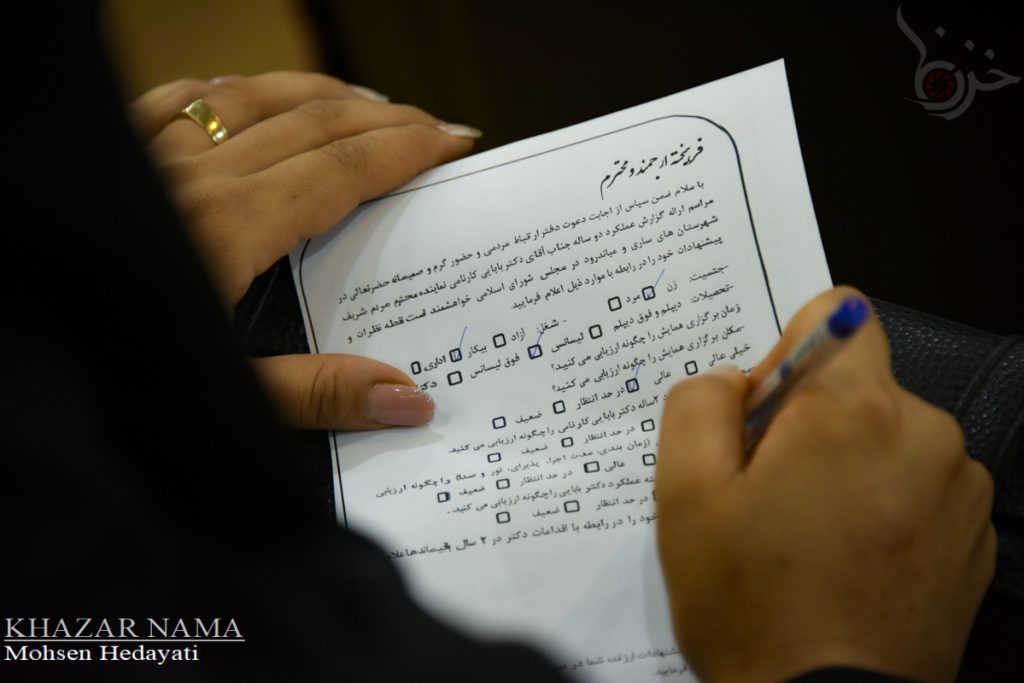 خزرنما
فریخته ارجمند و محترم
با سلام ضمن سپاس از اجابت دعوت دفتر ارتباط مردمی و حضور گرم و صمیمانه حضرتعالی در
مراسم ارائه گزارش عملکرد دو ساله جناب آقای دکتر بابایی کارنامی نماینده محترم مردم شریف
شهرستان های ساری و میاندرود در مجلس شورای اسلامی خواهشمند است نقطه نظرات و
پیشنهادات خود را در رابطه با موارد ذیل اعلام فرمایید.
-جنسیت: زن مرد - شغل: آزاد بیکار اداری
-تحصیلات: دیپلم و فوق دیپلم لیسانس فوق لیسانس
زمان برگزاری همایش را چگونه ارزیابی می کنید؟
-مکان برگزاری همایش را چگونه ارزیابی می کنید؟
خیلی عالی عالی در حد انتظار ضعیف
۲ساله دکتر بابایی کارنامی را چگونه ارزیابی می کنید.
در حد انتظار ضعیف
(زمان بندی، مدت اجرا، پذیرای، نور و صدا) را چگونه ارزیابی
عالی در حد انتظار ضعیف
عملکرد دکتر بابایی را چگونه ارزیابی می کنید.-
در حد انتظار ضعیف
خود را در رابطه با اقدامات دکتر در ۲ سال
شنهادات ارزنده شما در
فرمایید.
KHAZAR NAMA
Mohsen Hedayati